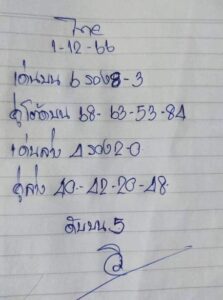 ไทย
1-12-66
เด่นบน 6 รอง 8-3
คู่โต๊ดบน 68-63-53-84
เด่นล่าง 4 รอง 2-0
คู่ล่าง 40-42-20-48-
ดับบน 5